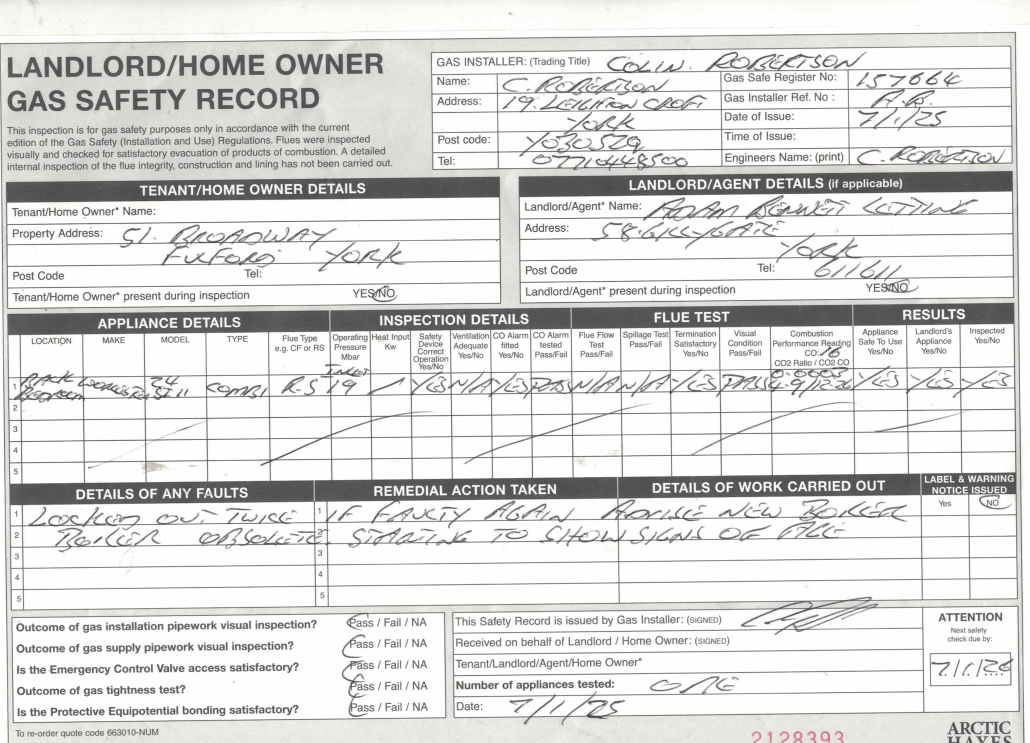 LANDLORD/HOME OWNER
GAS SAFETY RECORD
This inspection is for gas safety purposes only in accordance with the current
edition of the Gas Safety (Installation and Use) Regulations. Flues were inspected
visually and checked for satisfactory evacuation of products of combustion. A detailed
internal inspection of the flue integrity, construction and lining has not been carried out.
GAS INSTALLER: (Trading Title) COLIN. ROBERTSON
Name: C. ROBERTSON
Gas Safe Register No: 157664
Address: 19. LEIGHTON CROFT
Gas Installer Ref. No :
YORK
Date of Issue: 7/1/25
Post code: YO30
Time of Issue:
Tel: 07710448500
Engineers Name: (print) C. ROBERTSON
TENANT/HOME OWNER DETAILS
Tenant/Home Owner* Name:
Property Address: 51. BROADWAY
FULFORD YORK
Post Code Tel:
Tenant/Home Owner* present during inspection YES/NO
LANDLORD/AGENT DETAILS (if applicable)
Landlord/Agent* Name: ADAM BENNETT LETTING
Address: 58. GILLYGATE
YORK
Post Code Tel: 611611
Landlord/Agent* present during inspection YES/NO
APPLIANCE DETAILS INSPECTION DETAILS FLUE TEST RESULTS
LOCATION MAKE MODEL TYPE Flue Type e.g. CF or RS Operating Pressure Mbar Heat Input Kw Safety Device Correct Operation Yes/No Ventilation Adequate Yes/No CO Alarm fitted Yes/No CO Alarm tested Pass/Fail Flue Flow Test Pass/Fail Spillage Test Pass/Fail Termination Satisfactory Yes/No Visual Condition Pass/Fail Combustion Performance Reading CO: 16 CO2 Ratio / CO2 CO Appliance Safe To Use Yes/No Landlord's Appliance Yes/No Inspected Yes/No
INLET
0.0003
1 BACK BEDROOM WORCESTER 24 SI II COMBI R-S 19 / YES N/A YES PASS N/A N/A YES PASS YES YES YES
2
3
4
5
DETAILS OF ANY FAULTS REMEDIAL ACTION TAKEN DETAILS OF WORK CARRIED OUT LABEL & WARNING NOTICE ISSUED
Yes NO
1 LOCKED OUT TWICE 1 IF FAULTY AGAIN ADVISE NEW BOILER
2 BOILER OBSOLETE. 2 STARTING TO SHOW SIGNS OF AGE
3 3
4 4
5 5
Outcome of gas installation pipework visual inspection? Pass / Fail / NA
Outcome of gas supply pipework visual inspection? Pass / Fail / NA
Is the Emergency Control Valve access satisfactory? Pass / Fail / NA
Outcome of gas tightness test? Pass / Fail / NA
Is the Protective Equipotential bonding satisfactory? Pass / Fail / NA
This Safety Record is issued by Gas Installer: (SIGNED)
Received on behalf of Landlord / Home Owner: (SIGNED)
Tenant/Landlord/Agent/Home Owner*
Number of appliances tested: ONE
Date: 7/1/25
ATTENTION
Next safety
check due by:
7/1/26
To re-order quote code 663010-NUM
2128393
ARCTIC
HAYES